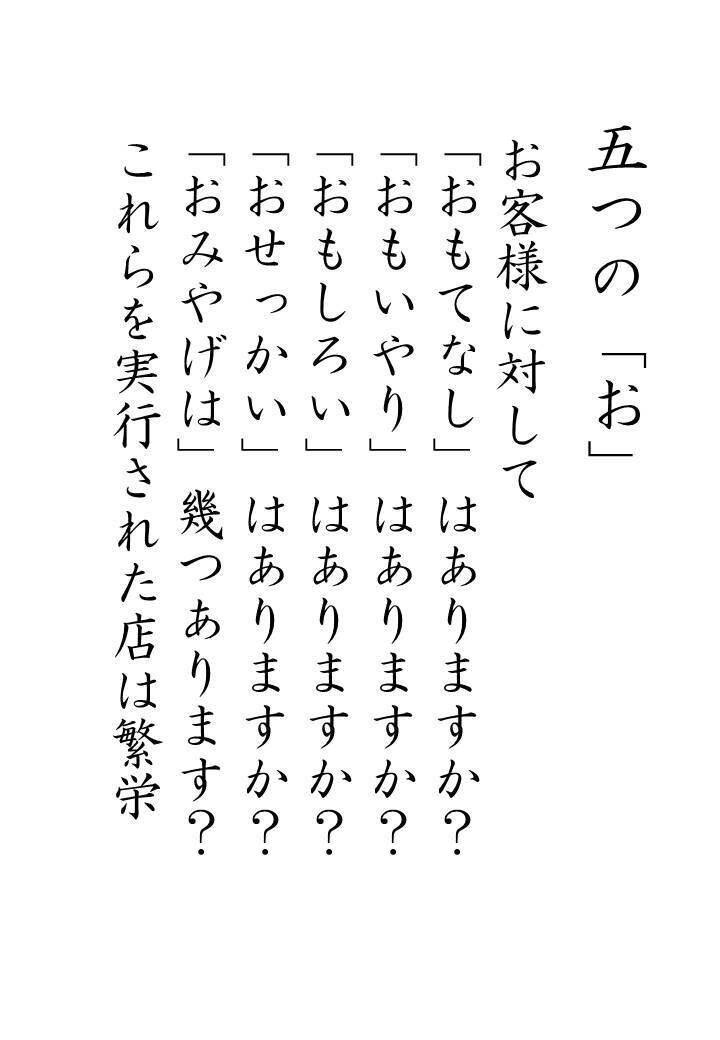 五つの「お」
お客様に対して
「おもてなし」はありますか？
「おもいやり」はありますか？
「おもしろい」はありますか？
「おせっかい」はありますか？
「おみやげは」幾つあります？
これらを実行された店は繁栄